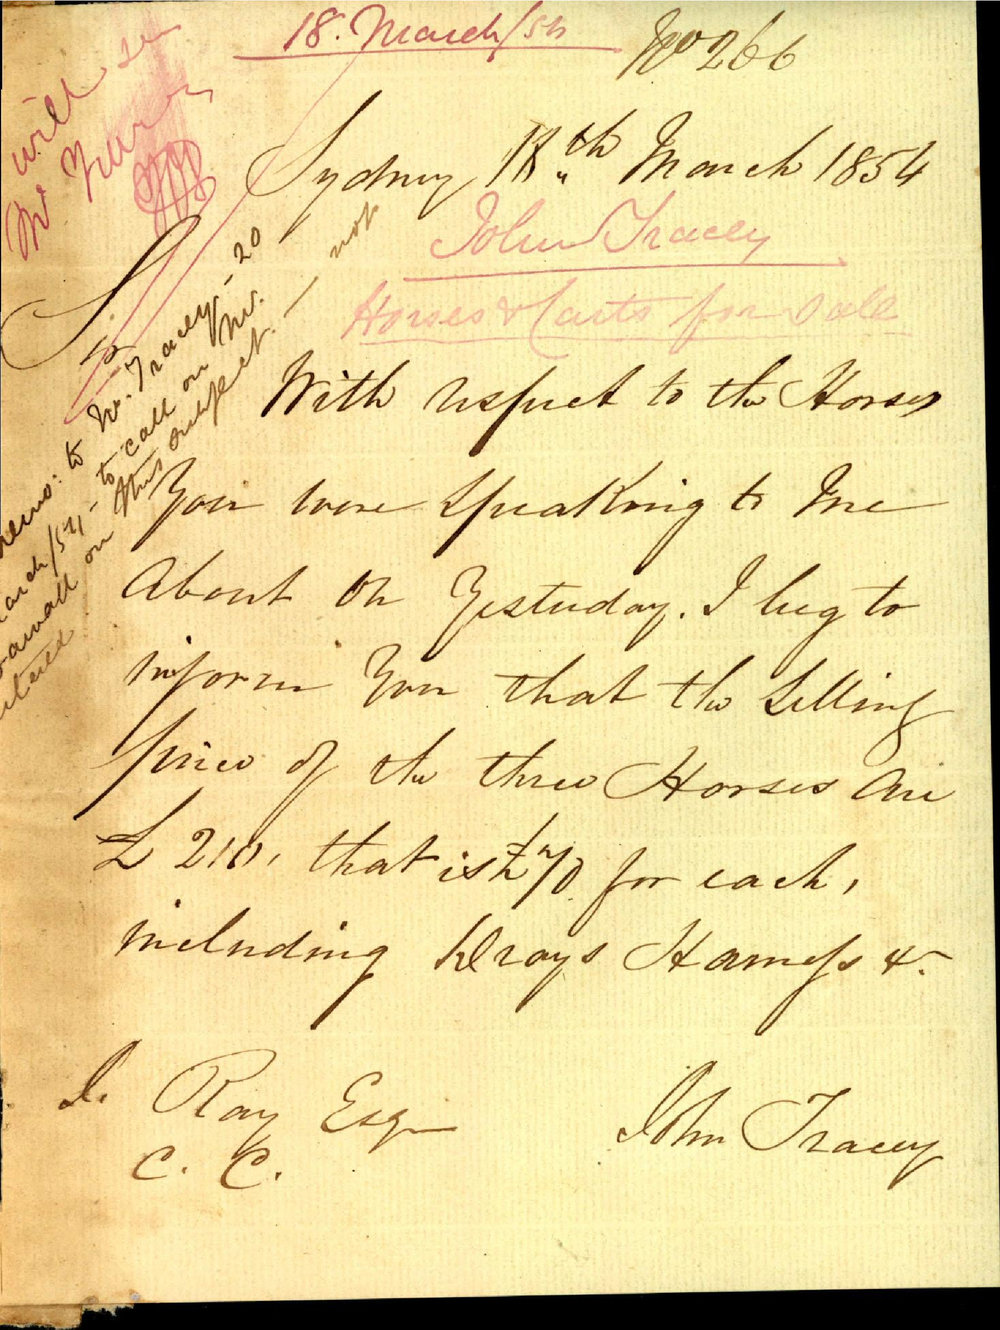 18. March/54
No 266
will
Mr
Sydney 18th March 1854
John Tracey
Horses & Carts for Sale
Sir
memo: to Mr. Tracey - 20
March/54, - to call on Mr.
on this subject. / not
With respect to the Horses
You were speaking to Me
About on Yesterday. I beg to
inform You that the Selling
price of the three Horses are
£ 210, that is £70 for each,
including Drays Harness &c
J. Ray Esqr
C. C.
John Tracey